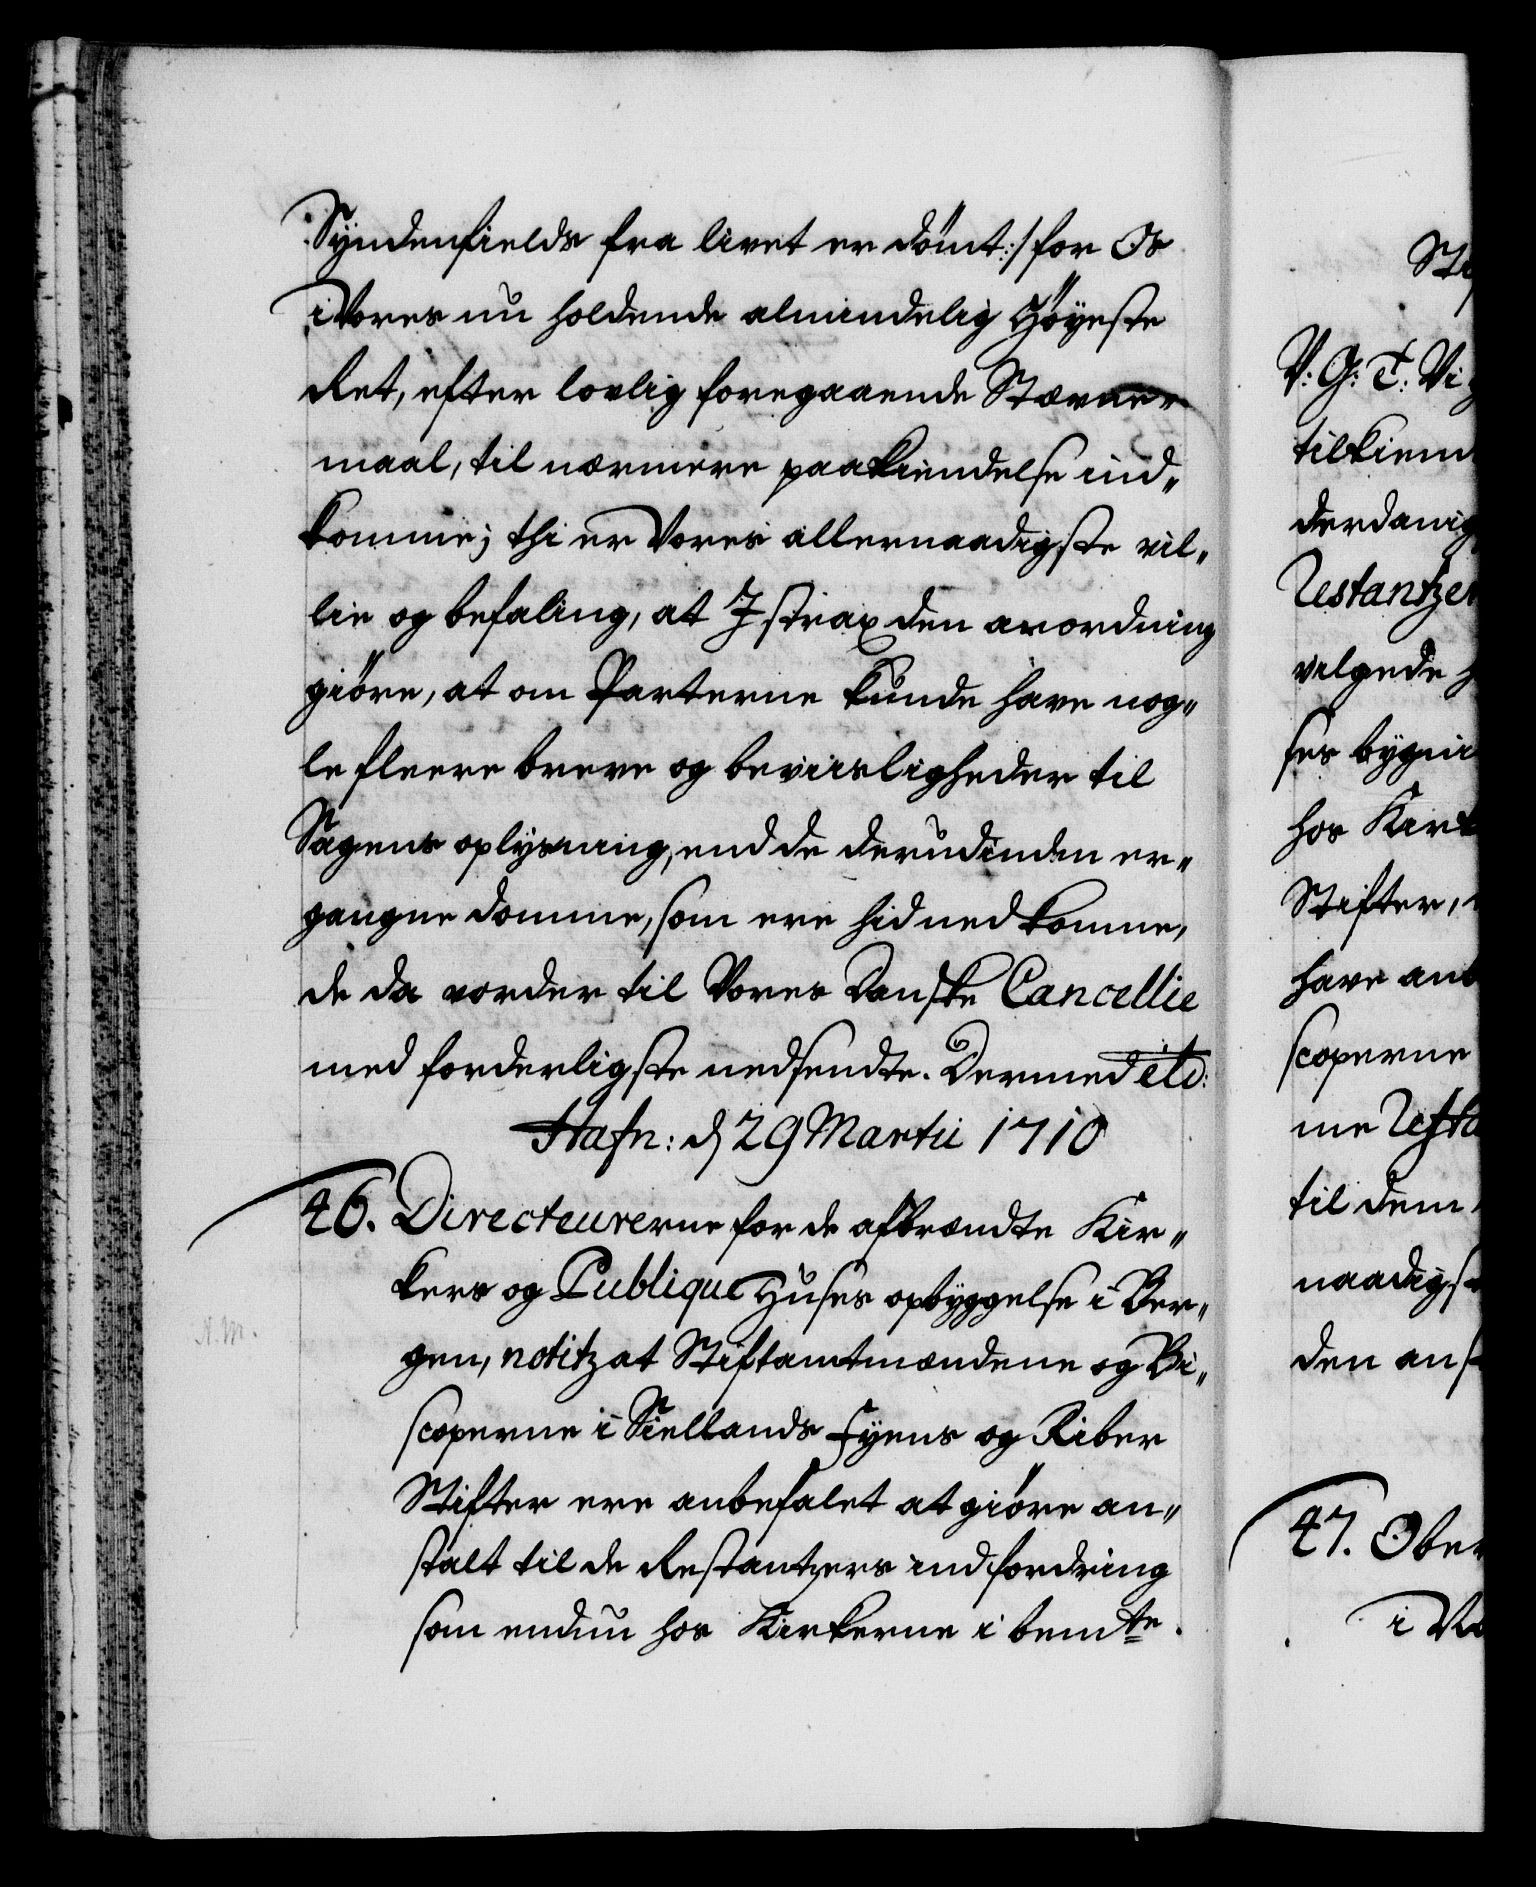 Syndenfields fra livet er dömt:/ for Os
i Vores nu holdende almindelig Höyeste
Ret, efter lovlig foregaaende Stævne-
maal, til nærmere paakiendelse ind„
komme; thi er Vores allernaadigste vil„
lie og befaling, at I strax den anordning
giöre, at om Parterne kunde have nog„
le fleere breve og beviisligheder til
Sagens oplysning, end de derudinden er„
gangne domme, som ere hidned komne,
de da vorder til Vores Danske Cancellie
med forderligste nedsendte. Dermed etc:
Hafn: d 29 Martii 1710
46. Directeurerne for de afbrændte Kir„
kers og Publique Huses opbyggelse i Ber„
gen, notitz at Stiftamtmændene og Bi„
scoperne i Siellands Fyens og Riber
Stifter ere anbefalet at giöre an„
stalt til de Restantzers indfordring
som endnu hos Kirkerne i bemte
N.M.
V: G: T: Vi
tilkiend
derdanig
Restantzer
vilgede
ses bygni
hos Kirk
Stifter,
have anb
scoperne
me Resta
til dem
naadigs
den ans
47. Ober
i No